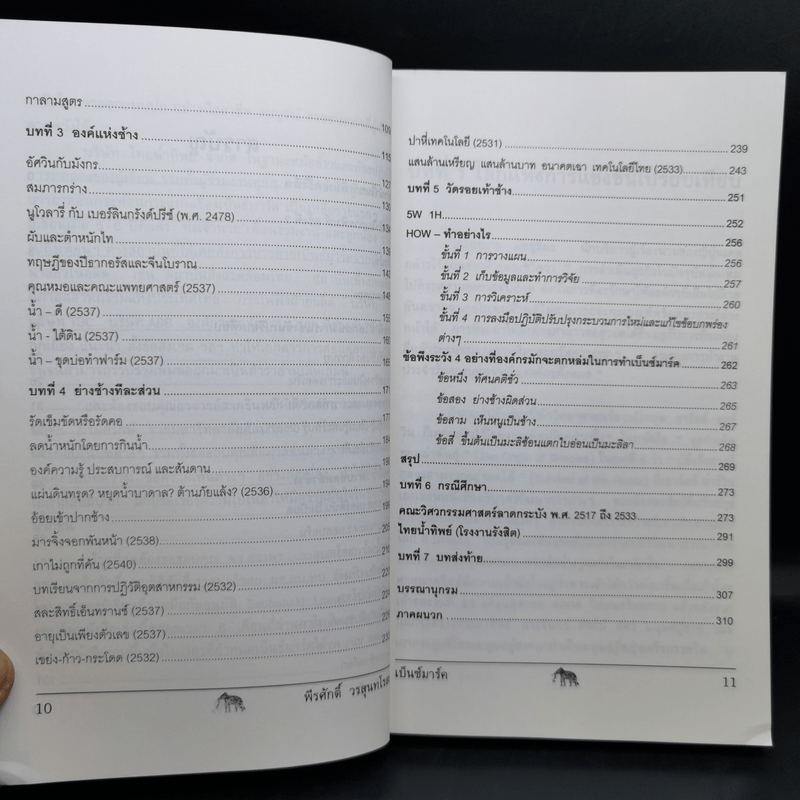 กาลามสูตร 109
บทที่ 3 องค์แห่งช้าง
อัศวินกับมังกร
สมภารกร่าง
นูโวลารี่ กับ เบอร์ลินกรังด์ปรีซ์ (พ.ศ. 2478)
ผับและตำหนักไท
ทฤษฎีของปีธากอรัสและจีนโบราณ
คุณหมอและคณะแพทยศาสตร์ (2537)
น้ำ – ดี (2537)
น้ำ - ใต้ดิน (2537)
น้ำ – ขุดบ่อทำฟาร์ม (2537)
บทที่ 4 ย่างช้างทีละส่วน
รัดเข็มขัดหรือรัดคอ
ลดน้ำหนักโดยการกินน้ำ
องค์ความรู้ ประสบการณ์ และสันดาน
แผ่นดินทรุด? หยุดน้ำบาดาล? ต้านภัยแล้ง? (2536)
อ้อยเข้าปากช้าง
มารจิ้งจอกพันหน้า (2538)
เกาไม่ถูกที่คัน (2540)
บทเรียนจากการปฏิวัติอุตสาหกรรม (2532)
สละสิทธิ์เอ็นทรานซ์ (2537)
อายุเป็นเพียงตัวเลข (2537)
เขย่ง-ก้าว-กระโดด (2532)
10 พีรศักดิ์ วรสุนทโรสถ
ปาหี่เทคโนโลยี (2531) 239
แสนล้านเหรียญ แสนล้านบาท อนาคตเฉา เทคโนโลยีไทย (2533) 243
บทที่ 5 วัดรอยเท้าช้าง 251
5W 1H 252
HOW – ทำอย่างไร 256
ขั้นที่ 1 การวางแผน 256
ขั้นที่ 2 เก็บข้อมูลและทำการวิจัย 257
ขั้นที่ 3 การวิเคราะห์ 260
ขั้นที่ 4 การลงมือปฏิบัติปรับปรุงกระบวนการใหม่และแก้ไขข้อบกพร่อง
ต่างๆ 261
ข้อพึงระวัง 4 อย่างที่องค์กรมักจะตกหล่มในการทำเบ็นซ์มาร์ค 262
ข้อหนึ่ง ทัศนคติชั่ว 263
ข้อสอง ย่างช้างผิดส่วน 265
ข้อสาม เห็นหนูเป็นช้าง 267
ข้อสี่ ขึ้นต้นเป็นมะลิซ้อนแตกใบอ่อนเป็นมะลิลา 268
สรุป 269
บทที่ 6 กรณีศึกษา 273
คณะวิศวกรรมศาสตร์ลาดกระบัง พ.ศ. 2517 ถึง 2533 273
ไทยน้ำทิพย์ (โรงงานรังสิต) 291
บทที่ 7 บทส่งท้าย 299
บรรณานุกรม 307
ภาคผนวก 310
เบ็นซ์มาร์ค 11